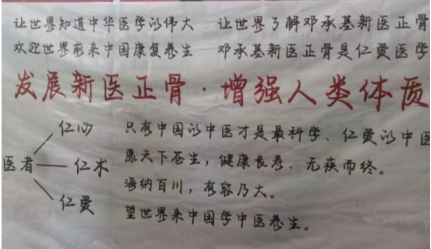 让世界知道中华医学的伟大 让世界了解邓承基新医正骨
欢迎世界前来中国康复养生 邓承基新医正骨是仁爱医学
发展新医正骨·增强人类体质
仁心 只有中国的中医才是最科学、仁爱的中医
医者 仁术 愿天下苍生，健康长寿、无疾而终。
海纳百川，有容乃大。
仁爱 望世界来中国学中医养生。